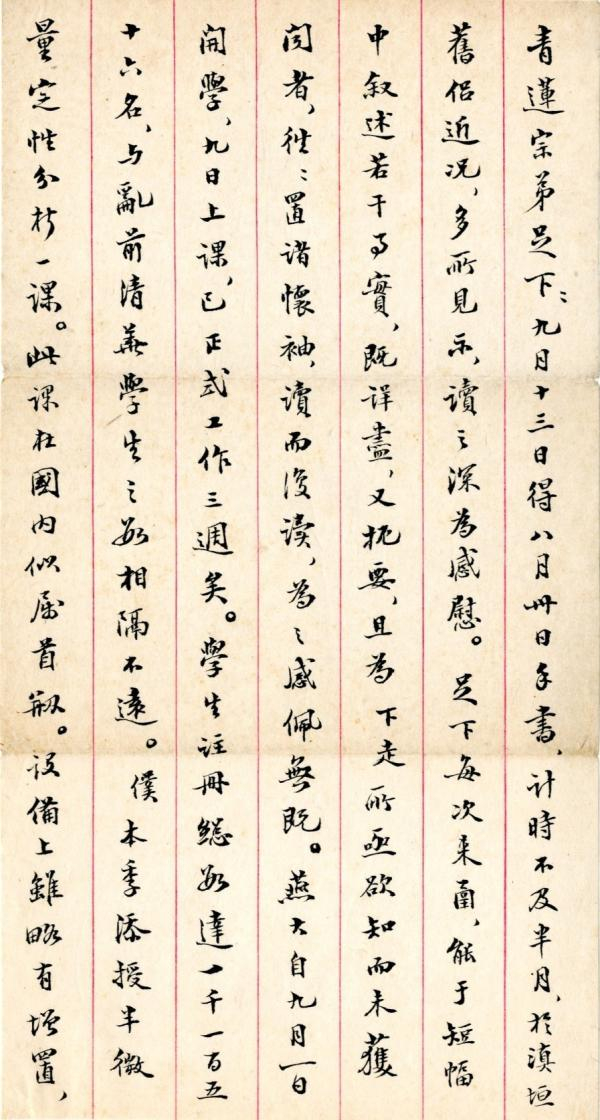 青蓮宗弟足下：九月十三日得八月卅日手書，計時不及半月，於滇垣
舊侣近况，多所見示，讀之深為感慰。足下每次来圅，能于短幅
中叙述若干事實，既詳盡，又扼要，且為下走所亟欲知而未獲
問者，往〻置諸懷袖，讀而復读，為之感佩無既。燕大自九月一日
開學，九日上課，已正式工作三週矣。學生註冊總數達一千一百五
十六名，与亂前清華學生之数相隔不遠。僕本季添授半微
量定性分析一課。此课在國内似属首剏。設備上雖略有增置，